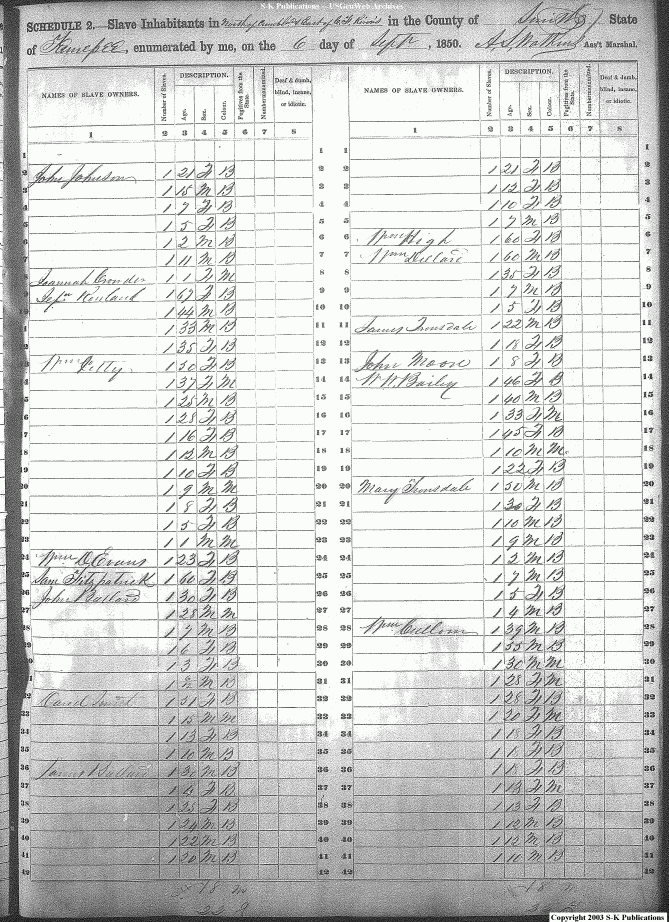 S-K Publications - USGenWeb Archives
SCHEDULE 2.—Slave Inhabitants in North of Cumbld & East of C. F. River in the County of Smith State
of Tennessee, enumerated by me, on the 6 day of Sept, 1850. A S Watkins Ass't Marshal.
NAMES OF SLAVE OWNERS. Number of Slaves. DESCRIPTION. Age. Sex. Colour. Fugitives from the State. Number manumitted. Deaf & dumb, blind, insane, or idiotic.
1 2 3 4 5 6 7 8
1
2 John Johnson 1 21 F B
3 1 15 M B
4 1 7 F B
5 1 5 F B
6 1 2 M B
7 1 11 M B
8 Joannah Crowder 1 1 F M
9 1 67 F B
10 1 44 M B
11 1 33 M B
12 1 35 F B
13 Wm Petty 1 50 F B
14 1 37 F M
15 1 25 M B
16 1 28 F B
17 1 16 F B
18 1 12 M B
19 1 10 F B
20 1 9 M M
21 1 8 F B
22 1 5 F B
23 1 1 M M
24 Wm D. Evans 1 23 F B
25 Sam Fitzpatrick 1 60 F B
26 John Ballard 1 30 F B
27 1 28 M M
28 1 7 M B
29 1 6 F B
30 1 3 F B
31 1 M B
32 David Smith 1 51 F B
33 1 15 M M
34 1 13 F B
35 1 10 M B
36 James Ballard 1 30 M B
37 1 4 F B
38 1 25 F B
39 1 24 M B
40 1 22 M B
41 1 20 M B
42
NAMES OF SLAVE OWNERS. Number of Slaves. DESCRIPTION. Age. Sex. Colour. Fugitives from the State. Number manumitted. Deaf & dumb, blind, insane, or idiotic.
1 2 3 4 5 6 7 8
1
2 1 21 F B
3 1 12 F B
4 1 10 F B
5 1 7 M B
6 Wm High 1 60 F B
7 Wm Dillard 1 60 M B
8 1 35 F B
9 1 7 M B
10 1 5 F B
11 James Trousdale 1 22 M B
12 1 18 F B
13 John Moore 1 8 F B
14 W. W. Bailey 1 46 F B
15 1 40 M B
16 1 33 F M
17 1 45 F B
18 1 10 M M
19 1 22 F B
20 Mary Trousdale 1 50 M B
21 1 30 F B
22 1 10 M B
23 1 9 M B
24 1 2 M B
25 1 7 M B
26 1 5 F B
27 1 4 M B
28 Wm Cullom 1 39 M B
29 1 55 M B
30 1 30 M M
31 1 28 F M
32 1 28 F B
33 1 20 F M
34 1 18 F B
35 1 18 F B
36 1 18 F B
37 1 13 F M
38 1 13 F B
39 1 12 M B
40 1 12 M B
41 1 10 M B
42
18 m
18 m
Copyright 2003 S-K Publications